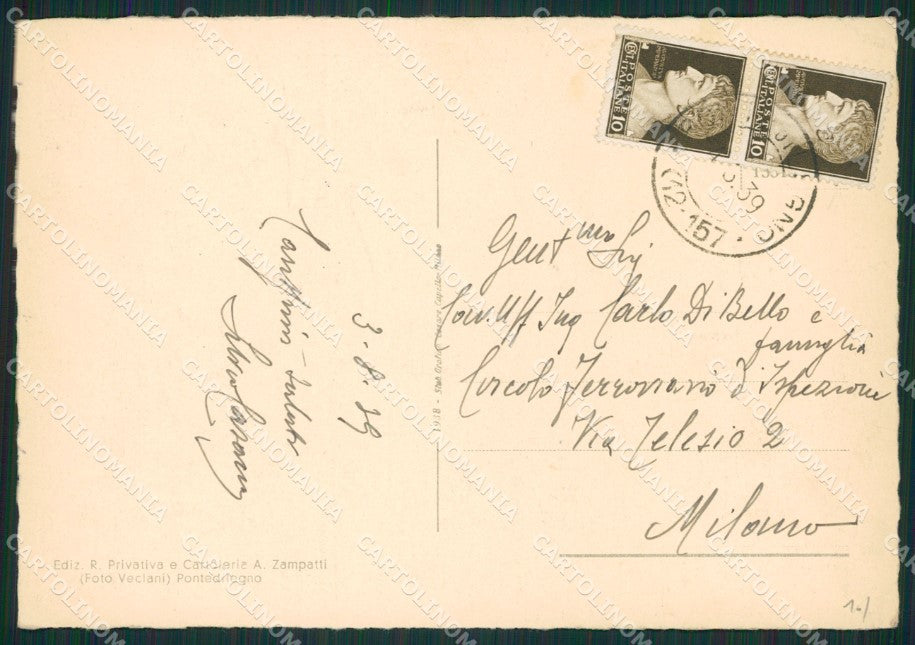 3-8-39
Gent.mo Sig
Cav. Uff Ing Carlo Di Bello e
famiglia
Circolo Ferroviario d'Ispezione
Via Telesio 2
Milano
Ediz. R. Privativa e Cartoleria A. Zampatti
(Foto Veclani) Pontedilegno
1938 - Stab Grafico Cesare Capello - Milano
POSTE
ITALIANE
10
POSTE
ITALIANE
10
39
(12-157)
CARTOLINOMANIA